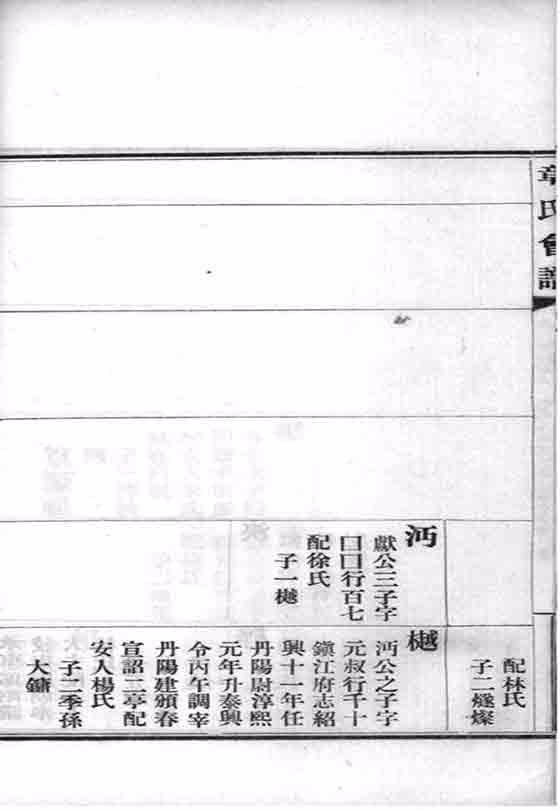 章氏會譜
沔
獻公三子字
囗囗行百七
配徐氏
子一樾
配林氏
子二燧燦
樾
沔公之子字
元叔行千十
鎭江府志紹
興十一年任
丹陽尉淳熙
元年升泰興
令丙午調宰
丹陽建頒春
宣詔二亭配
安人楊氏
子二季孫
大鏞